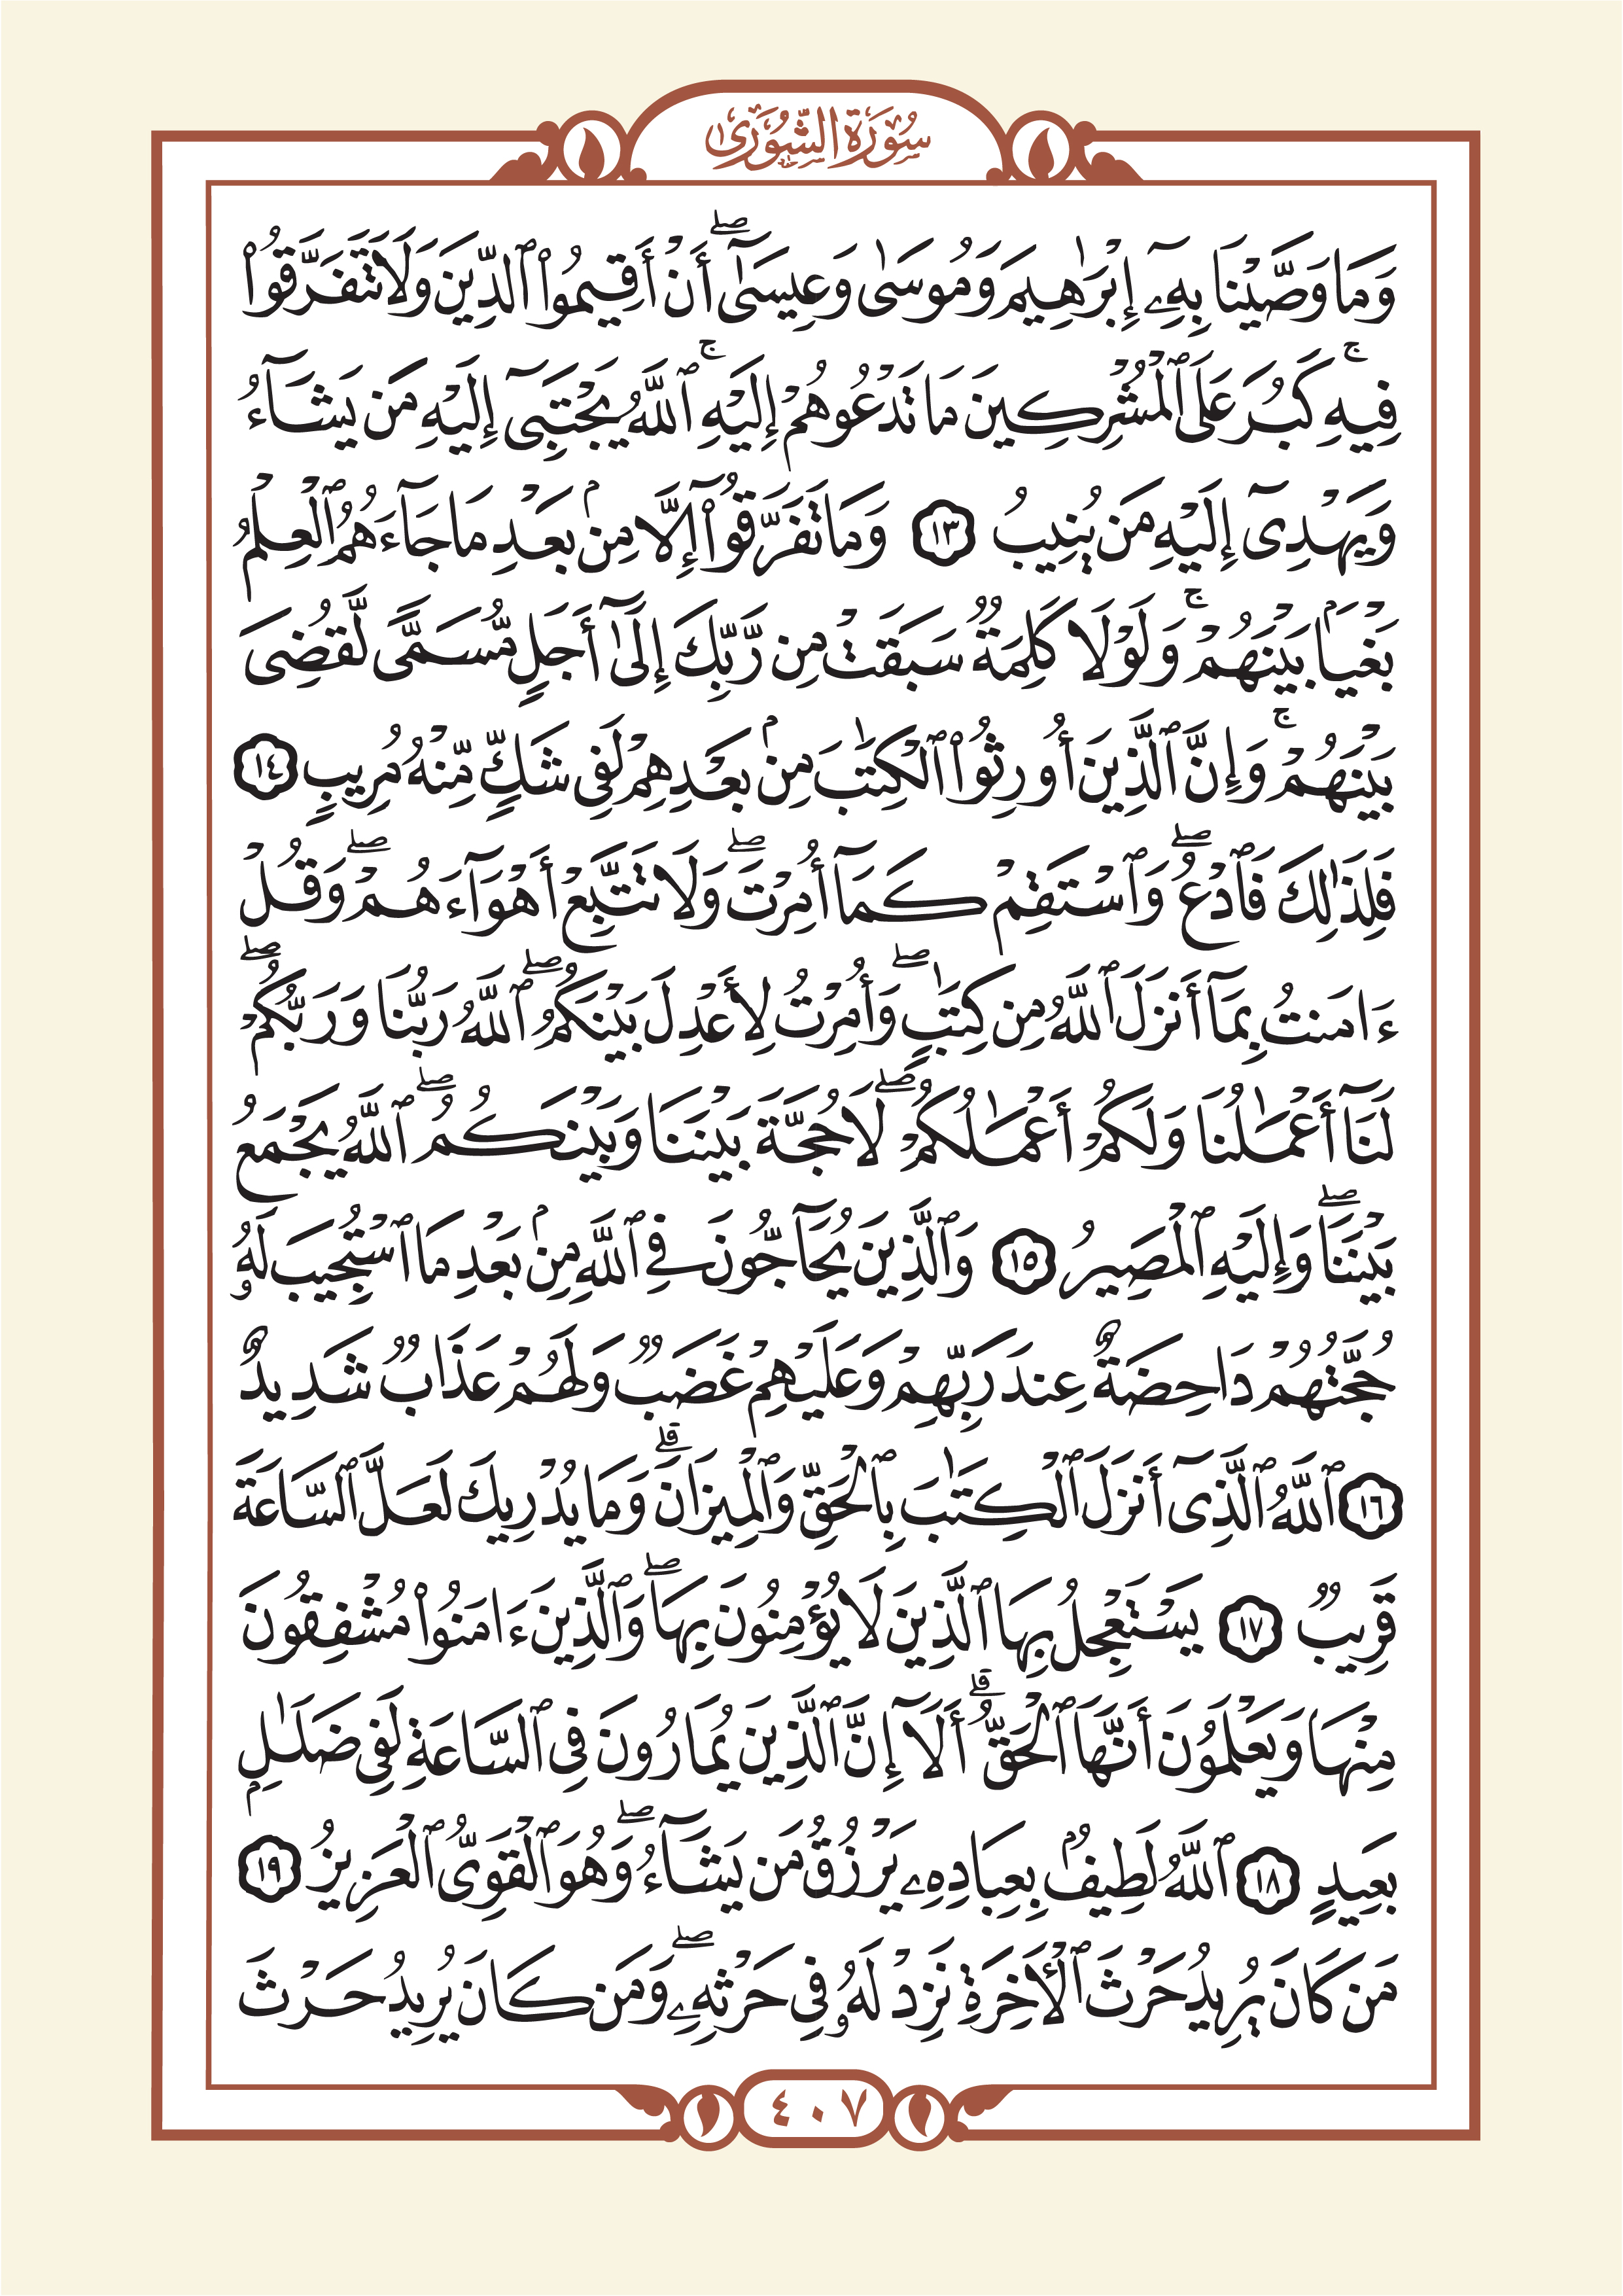 سُورَةُ الشُّورَىٰ
وَمَا وَصَّيْنَا بِهِۦٓ إِبْرَٰهِيمَ وَمُوسَىٰ وَعِيسَىٰٓۖ أَنْ أَقِيمُوا۟ ٱلدِّينَ وَلَا تَتَفَرَّقُوا۟
فِيهِۚ كَبُرَ عَلَى ٱلْمُشْرِكِينَ مَا تَدْعُوهُمْ إِلَيْهِۚ ٱللَّهُ يَجْتَبِىٓ إِلَيْهِ مَن يَشَآءُ
وَيَهْدِىٓ إِلَيْهِ مَن يُنِيبُ ١٣ وَمَا تَفَرَّقُوٓا۟ إِلَّا مِنۢ بَعْدِ مَا جَآءَهُمُ ٱلْعِلْمُ
بَغْيًۢا بَيْنَهُمْۚ وَلَوْلَا كَلِمَةٌ سَبَقَتْ مِن رَّبِّكَ إِلَىٰٓ أَجَلٍ مُّسَمًّى لَّقُضِىَ
بَيْنَهُمْۚ وَإِنَّ ٱلَّذِينَ أُورِثُوا۟ ٱلْكِتَٰبَ مِنۢ بَعْدِهِمْ لَفِى شَكٍّ مِّنْهُ مُرِيبٍ ١٤
فَلِذَٰلِكَ فَٱدْعُۖ وَٱسْتَقِمْ كَمَآ أُمِرْتَۖ وَلَا تَتَّبِعْ أَهْوَآءَهُمْۖ وَقُلْ
ءَامَنتُ بِمَآ أَنزَلَ ٱللَّهُ مِن كِتَٰبٍۖ وَأُمِرْتُ لِأَعْدِلَ بَيْنَكُمُۖ ٱللَّهُ رَبُّنَا وَرَبُّكُمْۖ
لَنَآ أَعْمَٰلُنَا وَلَكُمْ أَعْمَٰلُكُمْۖ لَا حُجَّةَ بَيْنَنَا وَبَيْنَكُمُۖ ٱللَّهُ يَجْمَعُ
بَيْنَنَاۖ وَإِلَيْهِ ٱلْمَصِيرُ ١٥ وَٱلَّذِينَ يُحَآجُّونَ فِى ٱللَّهِ مِنۢ بَعْدِ مَا ٱسْتُجِيبَ لَهُۥ
حُجَّتُهُمْ دَاحِضَةٌ عِندَ رَبِّهِمْ وَعَلَيْهِمْ غَضَبٌ وَلَهُمْ عَذَابٌ شَدِيدٌ
١٦ ٱللَّهُ ٱلَّذِىٓ أَنزَلَ ٱلْكِتَٰبَ بِٱلْحَقِّ وَٱلْمِيزَانَۗ وَمَا يُدْرِيكَ لَعَلَّ ٱلسَّاعَةَ
قَرِيبٌ ١٧ يَسْتَعْجِلُ بِهَا ٱلَّذِينَ لَا يُؤْمِنُونَ بِهَاۖ وَٱلَّذِينَ ءَامَنُوا۟ مُشْفِقُونَ
مِنْهَا وَيَعْلَمُونَ أَنَّهَا ٱلْحَقُّۗ أَلَآ إِنَّ ٱلَّذِينَ يُمَارُونَ فِى ٱلسَّاعَةِ لَفِى ضَلَٰلٍۭ
بَعِيدٍ ١٨ ٱللَّهُ لَطِيفٌۢ بِعِبَادِهِۦ يَرْزُقُ مَن يَشَآءُۖ وَهُوَ ٱلْقَوِىُّ ٱلْعَزِيزُ ١٩
مَن كَانَ يُرِيدُ حَرْثَ ٱلْءَاخِرَةِ نَزِدْ لَهُۥ فِى حَرْثِهِۦۖ وَمَن كَانَ يُرِيدُ حَرْثَ
٤٠٧